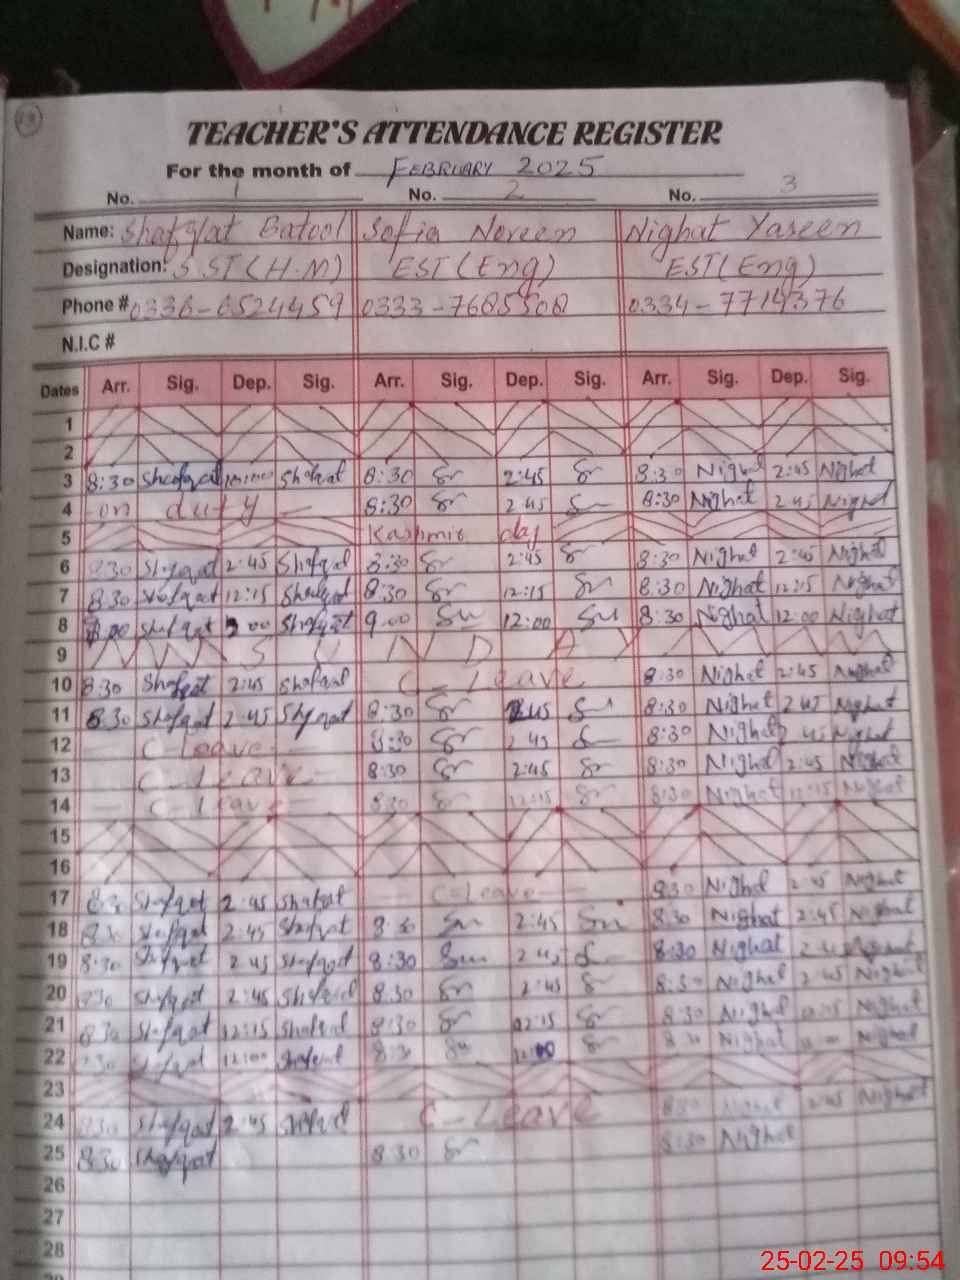 TEACHER'S ATTENDANCE REGISTER
For the month of FEBRUARY 2025
No. 1 No. 2 No. 3
Name: Shafqat Batool Sofia Noreen Nighat Yaseen
Designation: S.ST (H.M) EST (Eng) EST (Eng)
Phone # 0336-6524459 0333-7685508 0334-7714376
N.I.C #
Dates Arr. Sig. Dep. Sig. Arr. Sig. Dep. Sig. Arr. Sig. Dep. Sig.
1
2
3 8:30 Shafqat Shafqat 8:30 Sr 2:45 Sr 8:30 Nighat 2:45 Nighat
4 on duty 8:30 Sr 2:45 8:30 Nighat 2:45 Nighat
5 Kashmir day
6 8:30 Shafqat 2:45 Shafqat 8:30 Sr 2:45 Sr 8:30 Nighat 2:45 Nighat
7 8:30 Shafqat 12:15 Shafqat 8:30 Sr 12:15 8:30 Nighat 12:15 Nighat
8 Shafqat Shafqat 9:00 12:00 8:30 Nighat 12:00 Nighat
9 SUNDAY
10 8:30 Shafqat 2:45 Shafqat C-Leave 8:30 Nighat 2:45 Nighat
11 8:30 Shafqat 2:45 Shafqat 8:30 Sr 2:45 8:30 Nighat 2:45 Nighat
12 C Leave 8:30 Sr 2:45 8:30 Nighat 2:45 Nighat
13 C-Leave 8:30 Sr 2:45 Sr 8:30 Nighat 2:45 Nighat
14 C-Leave 8:30 Sr 12:15 Sr 8:30 Nighat 12:15 Nighat
15
16
17 8:30 Shafqat 2:45 Shafqat C-Leave 8:30 Nighat 2:45 Nighat
18 8:30 Shafqat 2:45 Shafqat 8:30 2:45 8:30 Nighat 2:45 Nighat
19 8:30 Shafqat 2:45 Shafqat 8:30 2:45 8:30 Nighat Nighat
20 8:30 Shafqat 2:45 Shafqat 8:30 Sr 2:45 Sr 8:30 Nighat 2:45 Nighat
21 8:30 Shafqat 12:15 Shafqat 8:30 Sr 12:15 Sr 8:30 Nighat Nighat
22 8:30 Shafqat 12:00 Shafqat 8:30 12:00 Sr 8:30 Nighat Nighat
23
24 8:30 Shafqat 2:45 Shafqat C-Leave 8:30 Nighat 2:45 Nighat
25 8:30 Shafqat 8:30 Sr 8:30 Nighat
26
27
28
25-02-25 09:54